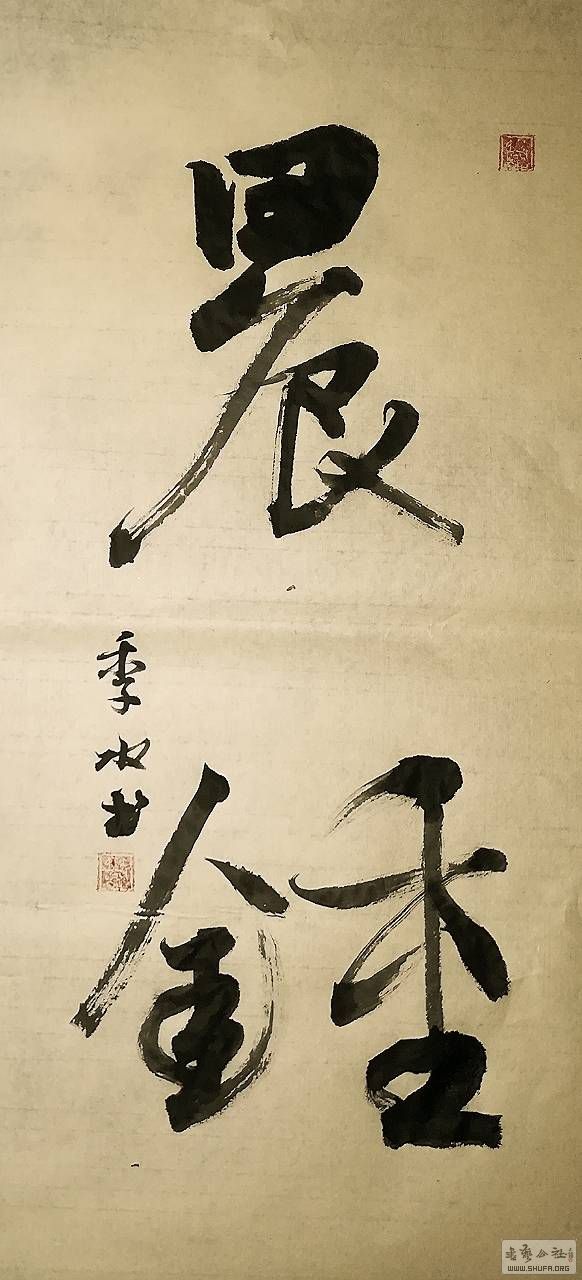 晨
鍾
季水书
书艺公社
WWW.SHUFA.ORG